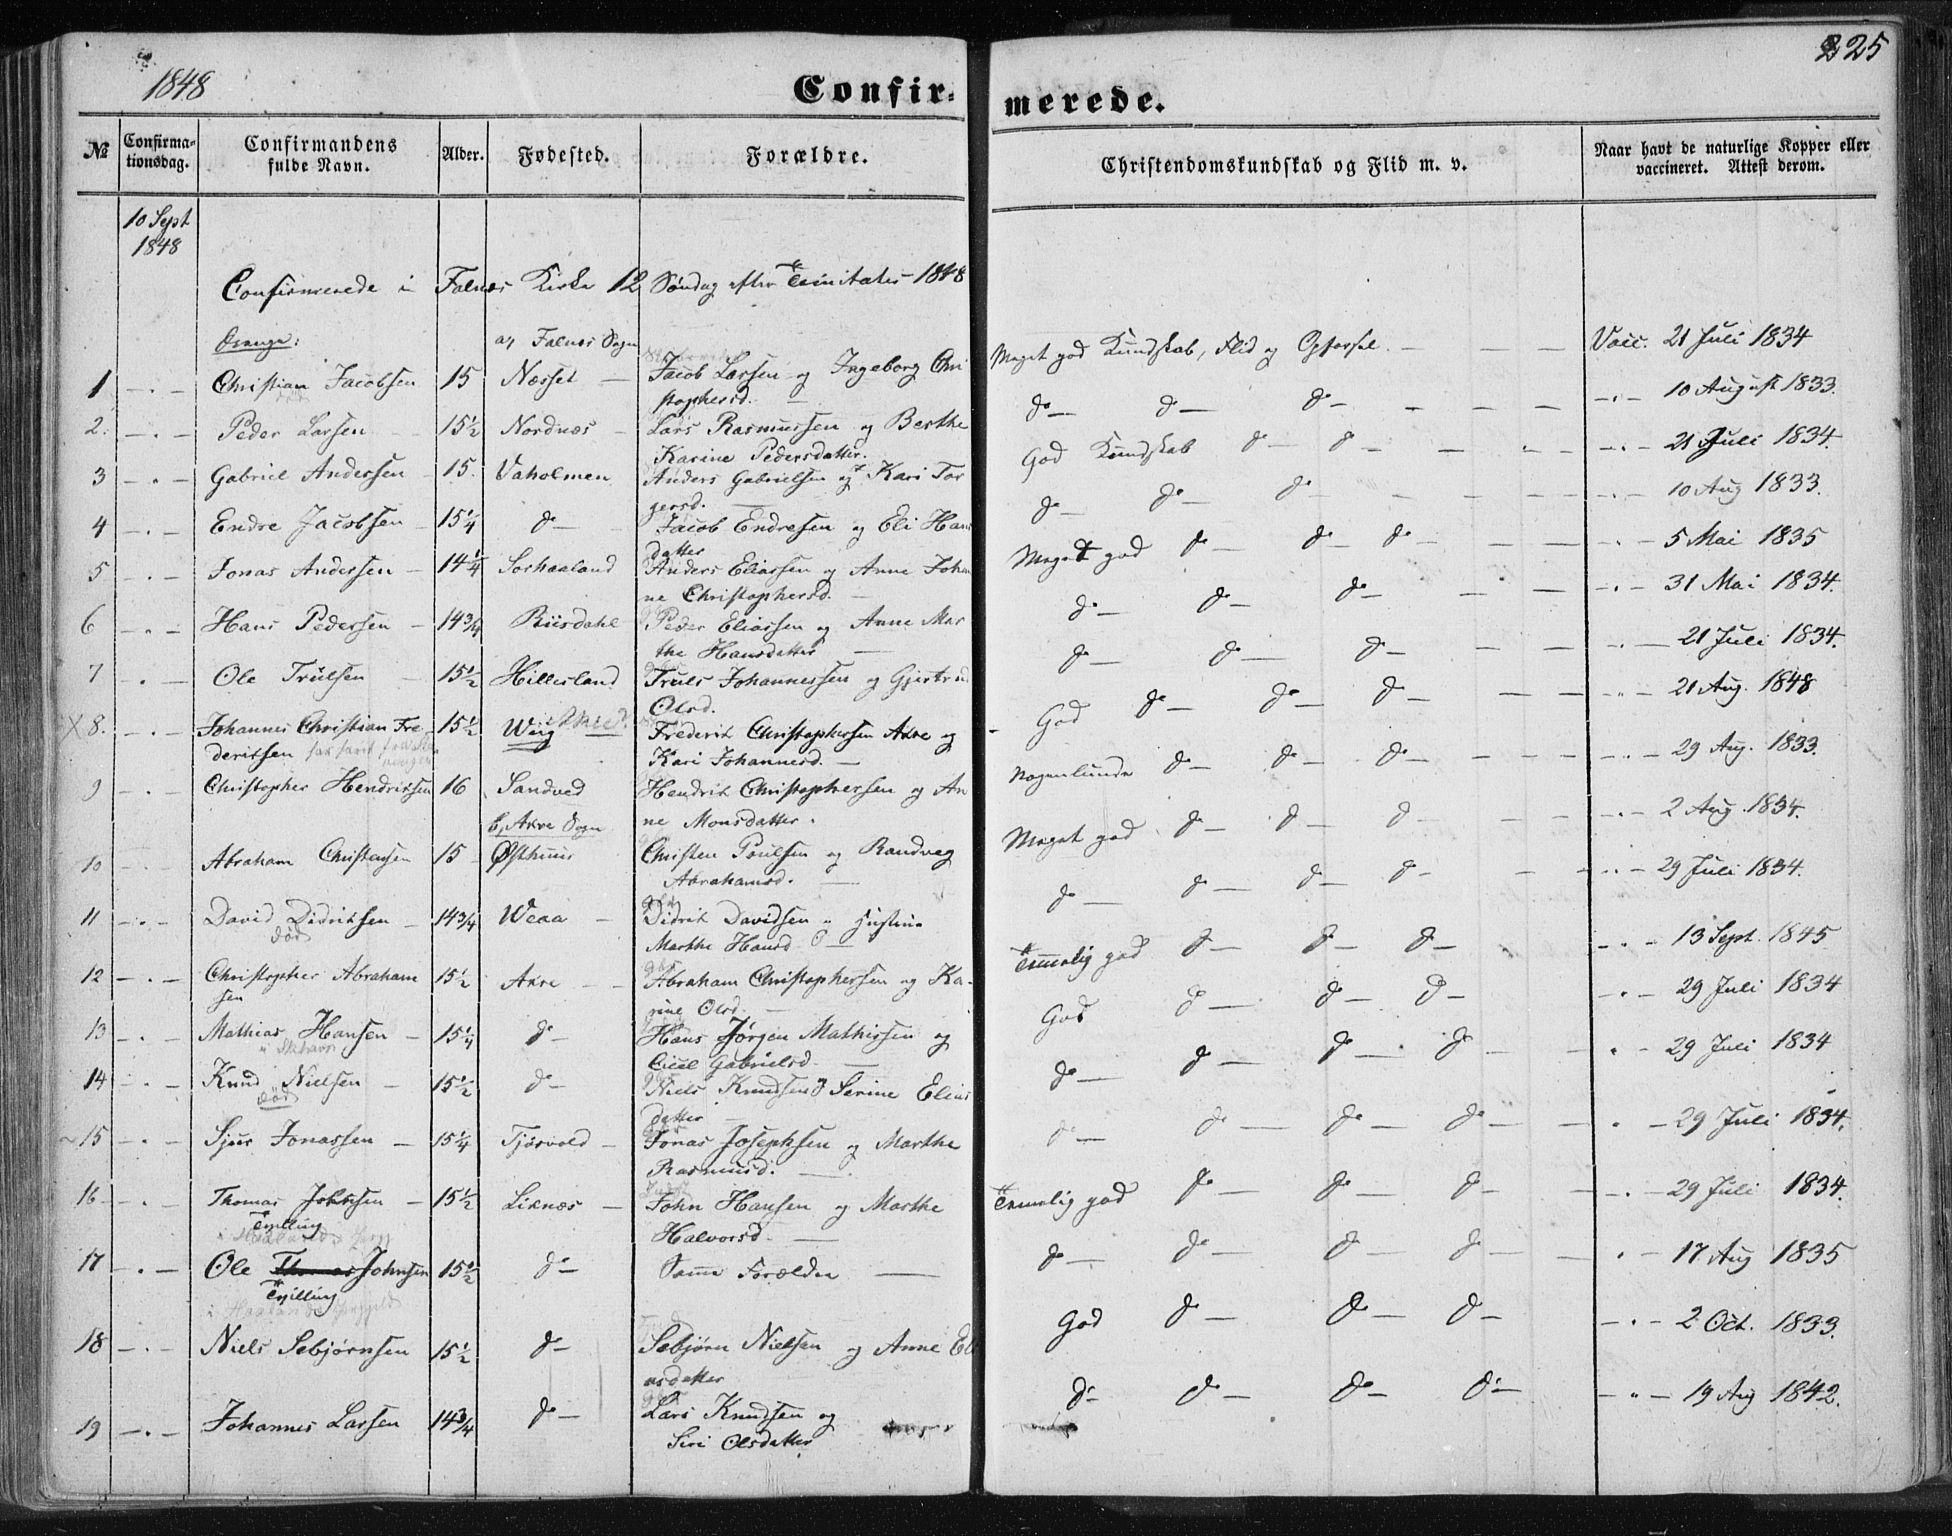 1848
Confir-
merede.
225
№ Confirma-tionsdag. Confirmandens fulde Navn. Alder. Fødested. Forældre. Christendomskundskab og Flid m. v. Naar havt de naturlige Kopper eller vaccineret. Attest derom.
10 Sept
1848
Confirmerede i Falnæs Kirke 12 Søndag efter Trinitatis 1848
Drenge: af Falnæs Sogn
1 -.- Christian Jacobsen 15 Næsset — Jacob Larsen og Ingeborg Chri Meget god Kundskab, Flid og Opførsel — — — Vacc. 21 Juli 1834
død stophersd. —
2. -.- Peder Larsen 15½ Nordnæs - Lars Rasmussen og Berthe do— do— do— — — — -.- 10 August 1833.
Karine Pedersdatter.
3 -.- Gabriel Anderssen 15. Vaholmen Anders Gabrielsen og Kari Tor God Kundskab do— do— — — — -.- 21 Juli 1834.
gersd. —
4 -.- Endre Jacobsen 15¼ do— Jacob Endresen og Eli Hans do— do— do— — — — -.- 10 Aug 1833.
datter
5 -.- Jonas Anderssen 14¼ Sorhaaland Anders Eliassen og Anne Johan Meget god do— do— do— — — -.- 5 Mai 1835
ne Christophersd. —
6 -.- Hans Pedersen 14¾ Riisdahl Peder Eliassen og Anne Mar do— do— do— — — -.- 31 Mai 1834.
the Hansdatter —
7 -.- Ole Trulsen 15½ Hillesland Truls Johannessen og Gjertrud do— do— do— — — -.- 21 Juli 1834.
Olsd.
X 8. -.- Johannes Christian Fre 15½ Wiig Frederik Christophersen Akre og God do— do— do— — — -.- 21 Aug. 1848
deriksen Kari Johannesd. —
9 -.- Christopher Hendriksen 16 Sandved Hendrik Christophersen og An Nogenlunde do— do— do— — — — -.- 29 Aug. 1833.
ne Monsdatter.
Af Akre Sogn
10 -.- Abraham Christensen 15 Østhuus Christen Poulsen og Randveg Meget god do— do— do — — -.- 2 Aug. 1834.
Abrahamsd. —
11 -.- David Didriksen - 14¾ Weaa — Didrik Davidsen og do— do— do— do— — — -.- 29 Juli 1834.
død Marthe Hansd —
12 -.- Christopher Abraham 15½ Akre — Abraham Christophersen og Ka- Temmelig god do— do— do— -.- 13 Sept. 1845
sen rine Olsd. —
13 -.- Mathias Hansen — 15¼ do— Hans Jørgen Mathissen og God do— do— do— -.- 29 Juli 1834
Cicel Gabrielsd —
14 -.- Knud Nielsen — 15½ do— Niels Knudsen og Serine Elias do— do— do— do— — -.- 29 Juli 1834
død datter —
15 -.- Sjur Jonassen — 15¼ Tjøsvold — Jonas Josephsen og Marthe do— do— do— do— — -.- 29 Juli 1834.
Rasmusd. —
16 -.- Thomas Johnsen — 15½ Liknæs — John Hansen og Marthe Temmelig god do— do— do— -.- 29 Juli 1834.
Tvilling Halvorsd. —
17 -.- Ole Thomas Johnsen 15½ do— Samme Forældre — do— do— do— do— — -.- 17 Aug 1835
Tvilling
18 -.- Niels Sebjørnsen 15½ do— Sebjørn Nielsen og Anne Eli God do— do— do— -.- 2 Oct. 1833.
asdatter
19 -.- Johannes Larsen 14¾ do— Lars Knudsen og do— do— do— do— -.- 19 Aug 1842.
Siri Olsdatter